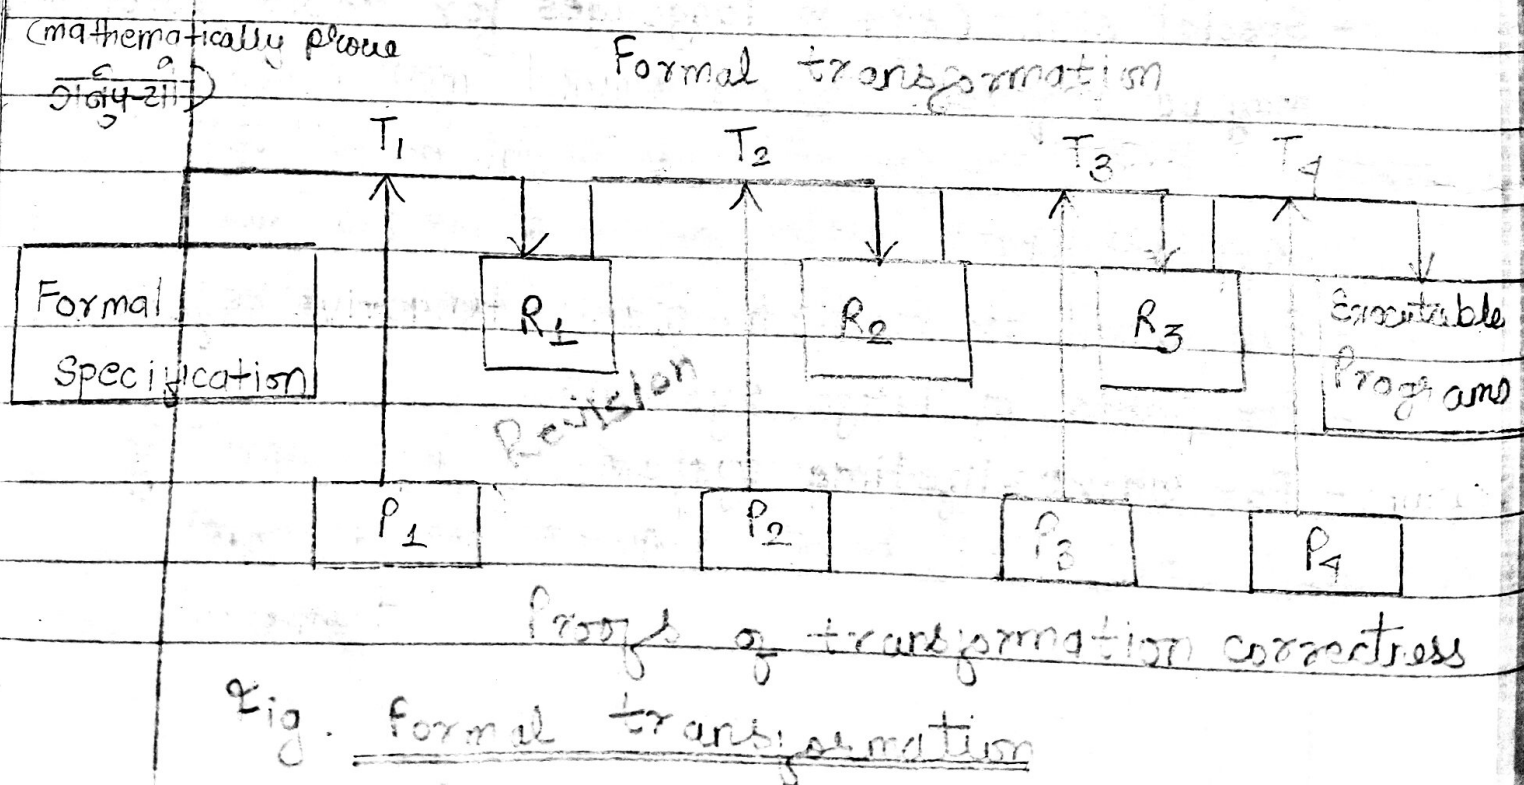 (mathematically prove
Formal transformation
T1
T2
T3
T4
Formal
Specification
R1
R2
R3
Executable
Programs
Revision
P1
P2
P3
P4
Proofs of transformation correctness
Fig. Formal transformation